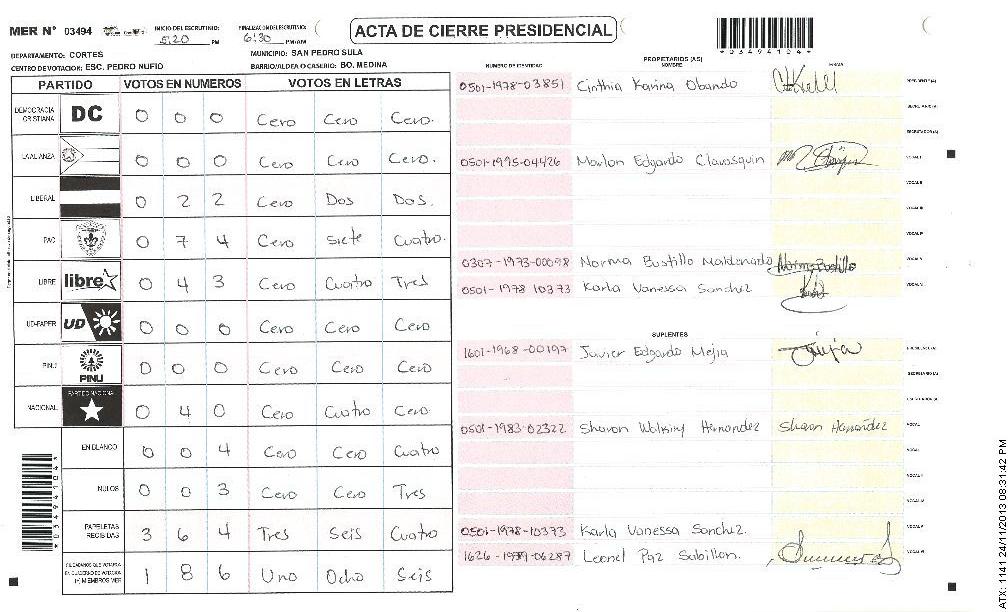 MER N° 03494 INICIO DEL ESCRUTINIO: 5:20 PM FINALIZACION DEL ESCRUTINIO: 6:30 PM/AM
ACTA DE CIERRE PRESIDENCIAL
DEPARTAMENTO: CORTES MUNICIPIO: SAN PEDRO SULA
CENTRO DE VOTACION: ESC. PEDRO NUFIO BARRIO/ALDEA O CASERIO: BO. MEDINA
PARTIDO VOTOS EN NUMEROS VOTOS EN LETRAS
DEMOCRACIA CRISTIANA DC 0 0 0 Cero Cero Cero.
LA ALIANZA 0 0 0 Cero Cero Cero.
LIBERAL 0 2 2 Cero Dos Dos.
PAC 0 7 4 Cero Siete Cuatro.
LIBRE libre 0 4 3 Cero Cuatro Tres
UD-FAPER UD 0 0 0 Cero Cero Cero
PINU PINU 0 0 0 Cero Cero Cero
NACIONAL PARTIDO NACIONAL 0 4 0 Cero Cuatro Cero.
EN BLANCO 0 0 4 Cero Cero Cuatro
NULOS 0 0 3 Cero Cero Tres
PAPELETAS RECIBIDAS 3 6 4 Tres Seis Cuatro
CIUDADANOS QUE VOTARON EN CUADERNO DE VOTACION (+) MIEMBROS MER 1 8 6 Uno Ocho Seis
PROPIETARIOS (AS)
NUMERO DE IDENTIDAD NOMBRE FIRMA
0501-1978-03851 Cinthia Karina Obando PRESIDENTE (A)
SECRETARIO (A)
ESCRUTADOR (A)
0501-1995-04426 Marlon Edgardo Clavasquin VOCAL I
VOCAL II
VOCAL III
VOCAL IV
0307-1973-00098 Norma Bustillo Maldonado Norma Bustillo VOCAL V
0501-1978 10373 Karla Vanessa Sanchez VOCAL VI
SUPLENTES
1601-1968-00197 Javier Edgardo Mejia PRESIDENTE (A)
SECRETARIO (A)
ESCRUTADOR (A)
0501-1983-02322 Sharon Hernandez Sharon Hernández VOCAL I
VOCAL II
VOCAL III
VOCAL IV
0501-1978-10373 Karla Vanessa Sanchez. VOCAL V
Leonel Paz Sabillon. VOCAL VI
*03494104*
ATX: 1141 24/11/2013 08:31:42 PM